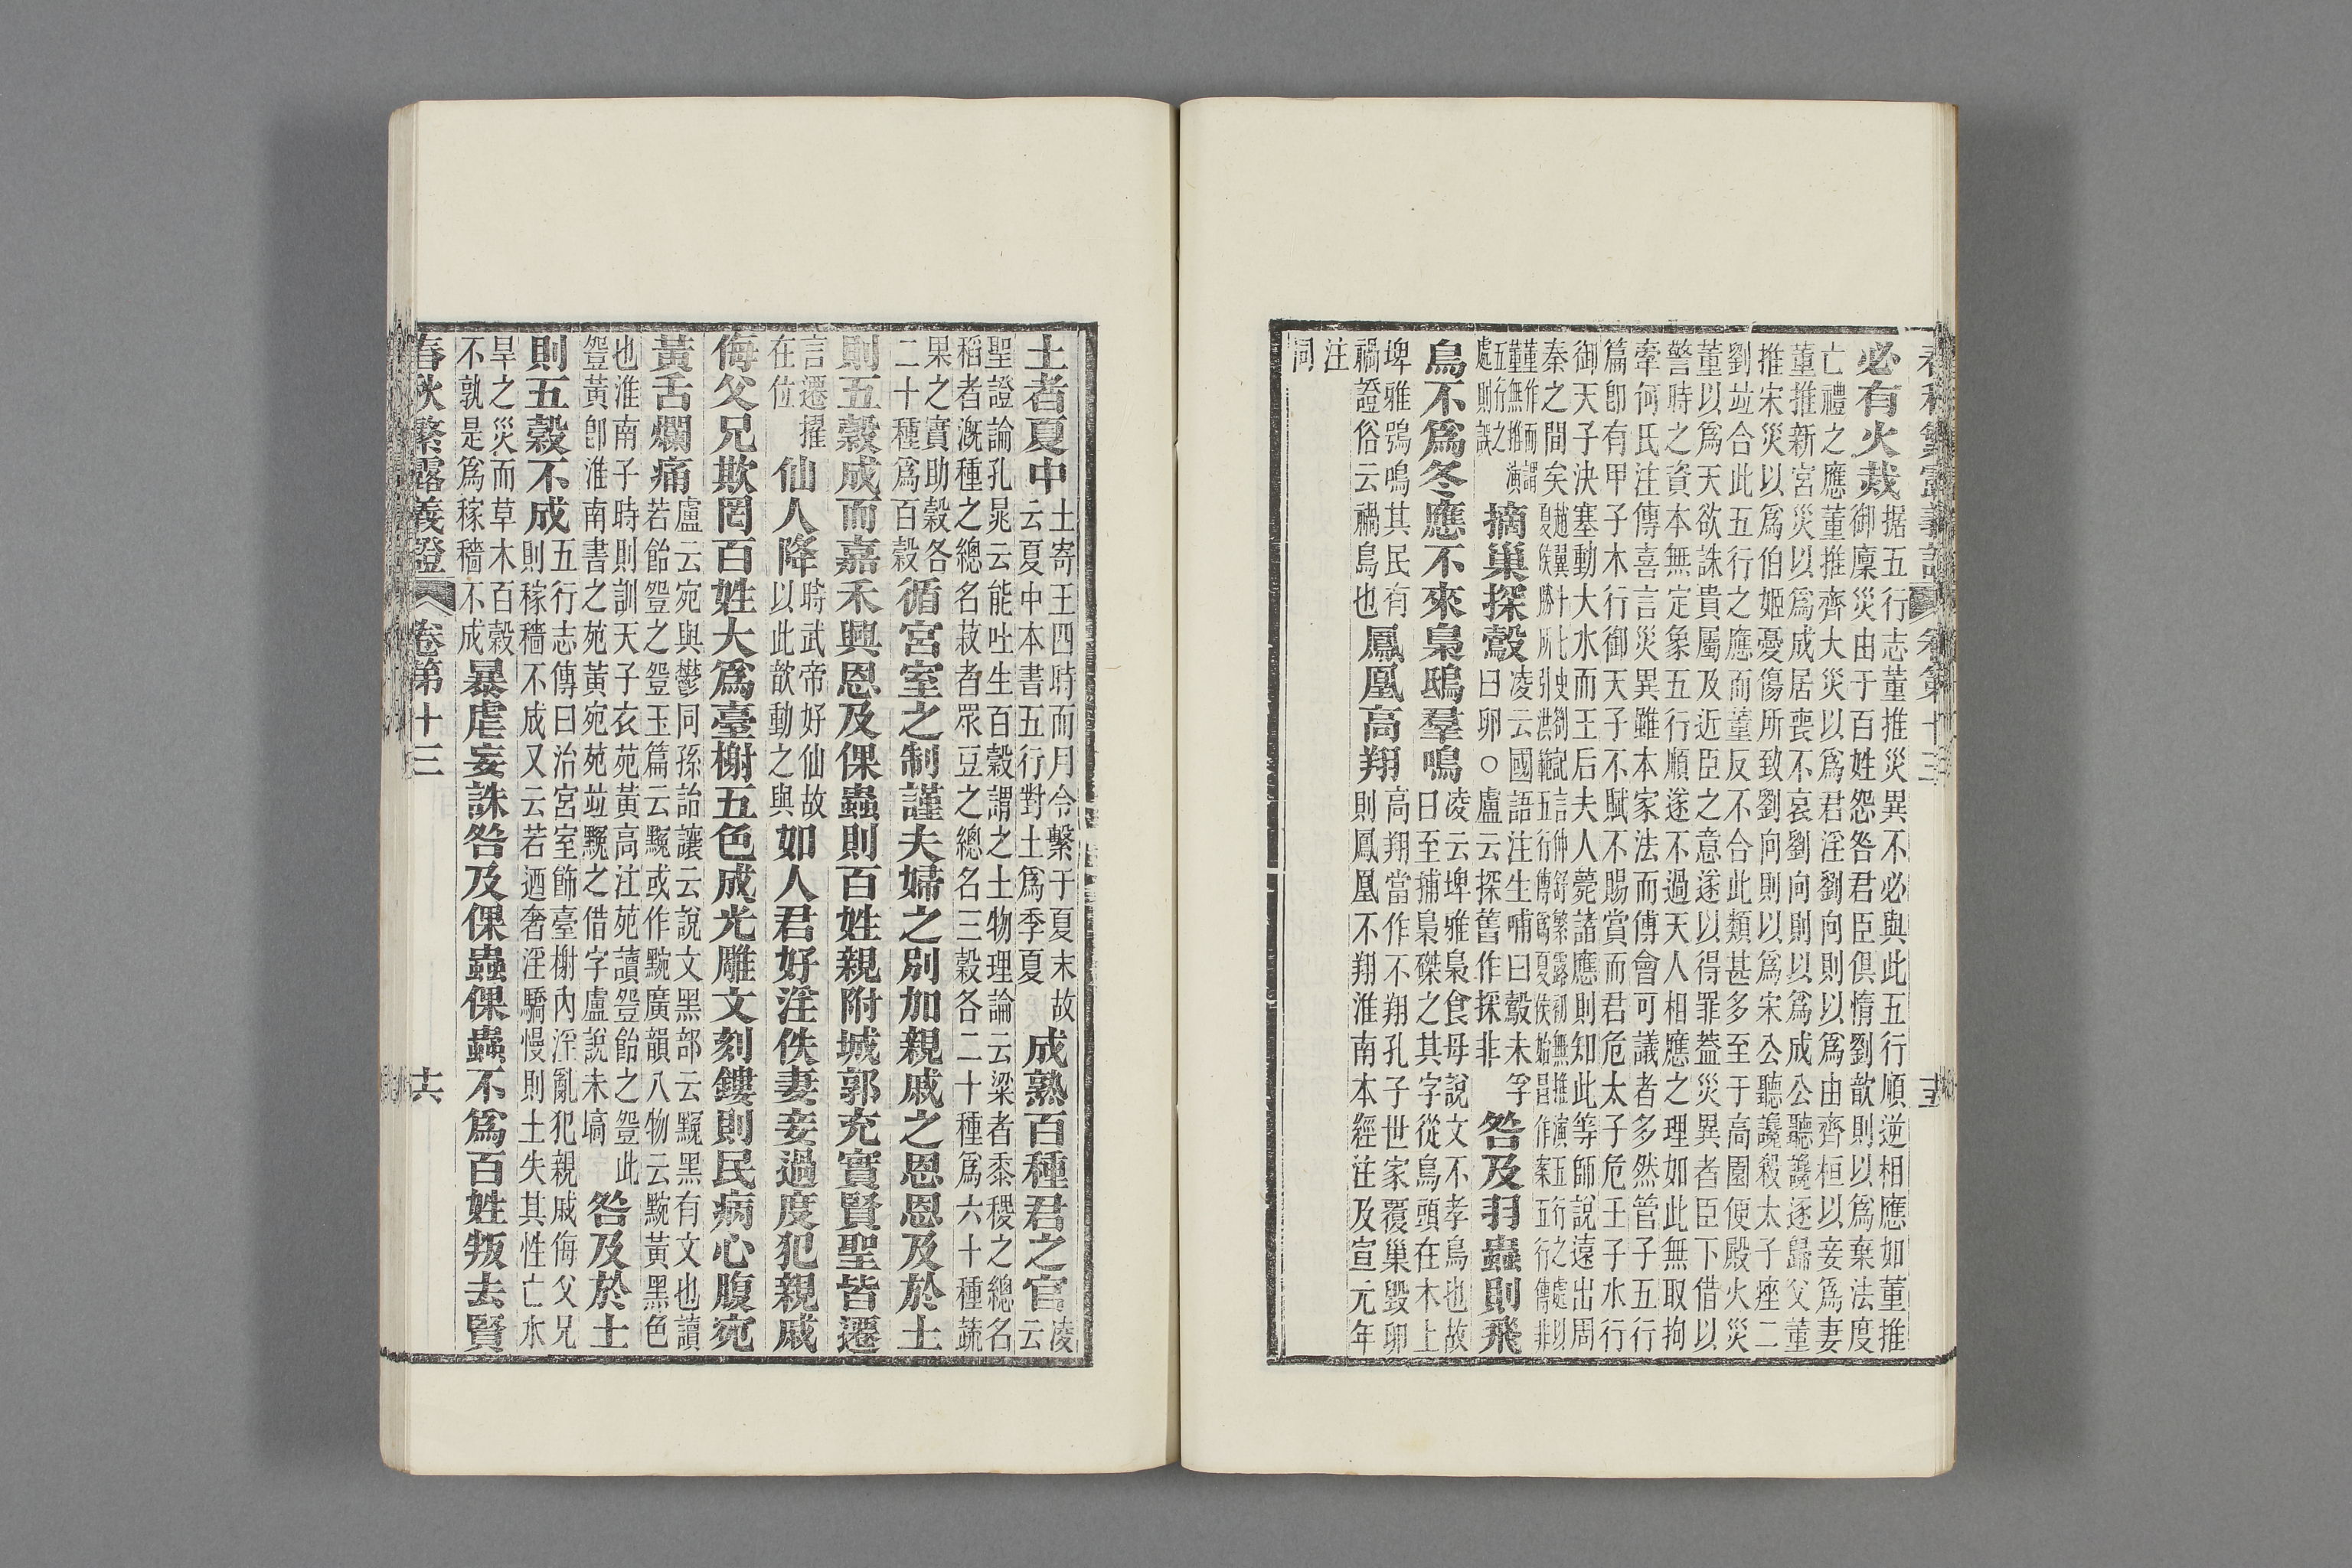 春秋繁露義證 卷第十三 十五
必有火烖据五行志董推災異不必與此五行順逆相應如董推御廩災由于百姓怨咎君臣俱惰劉歆則以爲棄法度
亡禮之應董推齊大災以爲君淫劉向則以爲由齊桓以妾爲妻
董推新宮災以爲成居喪不哀劉向則以爲成公聽讒逐歸父董
推宋災以爲伯姬憂傷所致劉向則以爲宋公聽讒殺太子痤二
劉竝合此五行之應而董反不合此類甚多至于高園便殿火災
董以爲天欲誅貴屬及近臣之意遂以得罪葢災異者臣下借以
警時之資本無定象五行順遂不過天人相應之理如此無取拘
牽何氏注傳喜言災異雖本家法而傅會可議者多然管子五行
篇卽有甲子木行御天子不賦不賜賞而君危太子危王子水行
御天子決塞動大水而王后夫人薨諸應則知此等師說遠出周
秦之間矣趙翼廿七史劄記言仲舒繁露初無推演五行之處以夏侯勝所引洪範五行傳爲夏侯始昌作案五行傳非
董作而謂董無推演五行之處則誤摘巢探鷇凌云國語注生哺曰鷇未孚曰卵○盧云探舊作採非咎及羽蟲則飛
鳥不爲冬應不來梟鴟羣鳴凌云埤雅梟食母說文不孝鳥也故日至捕梟磔之其字從鳥頭在木上
埤雅鴞鳴其民有禍證俗云禍鳥也鳳凰高翔高翔當作不翔孔子世家覆巢毀卵則鳳凰不翔淮南本經注及宣元年
注同
土者夏中土寄王四時而月令繫于夏末故云夏中本書五行對土爲季夏成熟百種君之官凌云
聖證論孔晁云能吐生百穀謂之土物理論云粱者黍稷之總名
稻者漑種之總名菽者眾豆之總名三穀各二十種爲六十種蔬
果之實助穀各二十種爲百穀循宮室之制謹夫婦之別加親戚之恩恩及於土
則五穀成而嘉禾興恩及倮蟲則百姓親附城郭充實賢聖皆遷
言遷擢在位仙人降時武帝好仙故以此歆動之與如人君好淫佚妻妾過度犯親戚
侮父兄欺罔百姓大爲臺榭五色成光雕文刻鏤則民病心腹宛
黃舌爛痛盧云宛與鬱同孫詒讓云說文黑部云黦黑有文也讀若飴䇺之䇺玉篇云黦或作䵫廣韻八物云䵫黃黑色
也淮南子時則訓天子衣苑黃高注苑讀䇺飴之䇺此䇺黃卽淮南書之苑黃宛苑竝黦之借字盧說未塙咎及於土
則五穀不成五行志傳曰治宮室飾臺榭內淫亂犯親戚侮父兄則稼穡不成又云若迺奢淫驕慢則土失其性亡水
旱之災而草木百穀不孰是爲稼穡不成暴虐妄誅咎及倮蟲倮蟲不爲百姓叛去賢
春秋繁露義證 卷第十三 十六